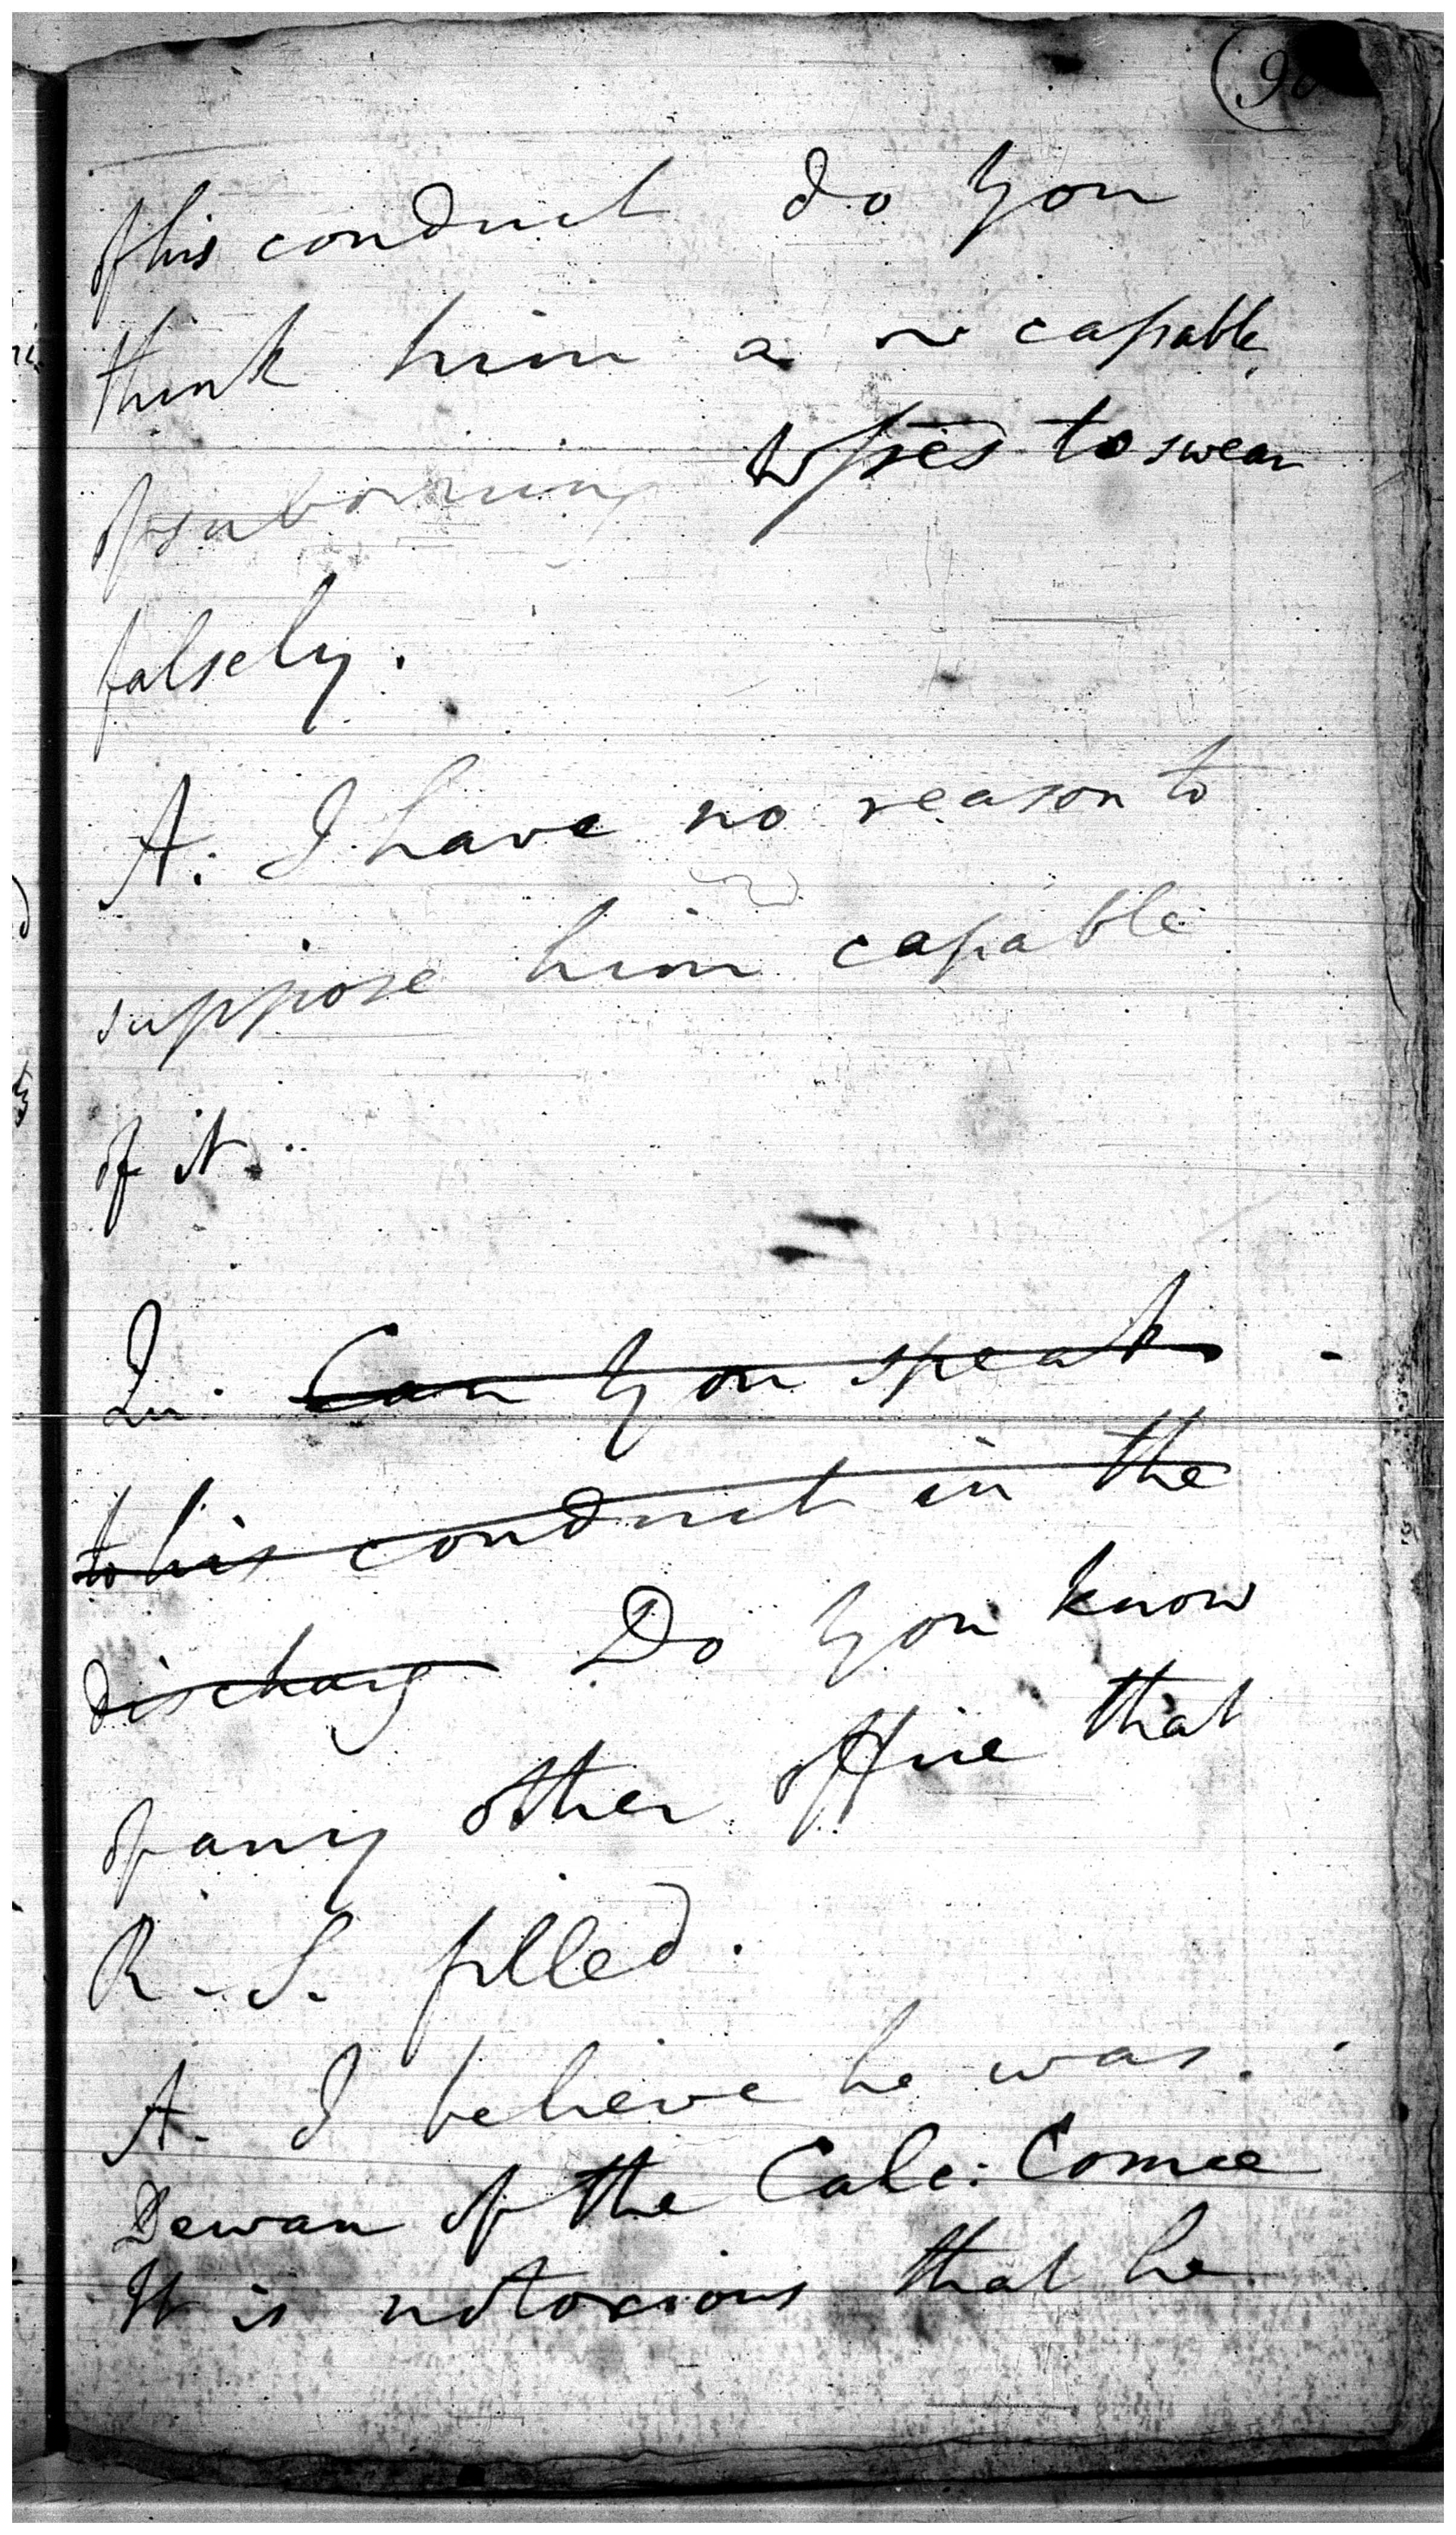 of his conduct do you
think him a capable
of suborning to swear
falsely.
A. I have no reason to
suppose him capable
of it.
Qu. Can you speak
to his conduct in the
discharg Do you know
of any other office that
R. S. filled.
A. I believe he was.
Dewan of the Calc: Comee
It is notorious that he